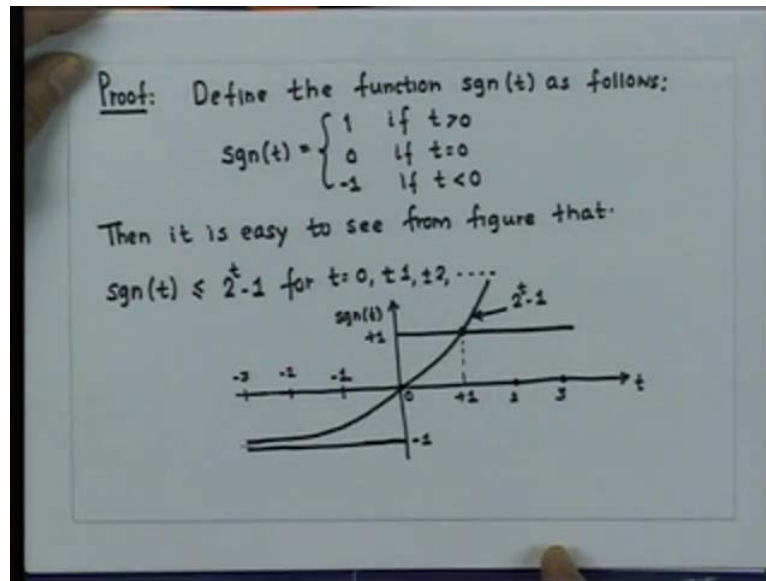 Proof: Define the function sgn(t) as follows:
sgn(t) = { 1 if t>0
0 if t=0
-1 if t<0
Then it is easy to see from figure that.
sgn(t) ≤ 2^t-1 for t=0, ±1, ±2, ....
2^t-1
sgn(t)
+1
-3 -2 -1 0 +1 2 3 t
-1